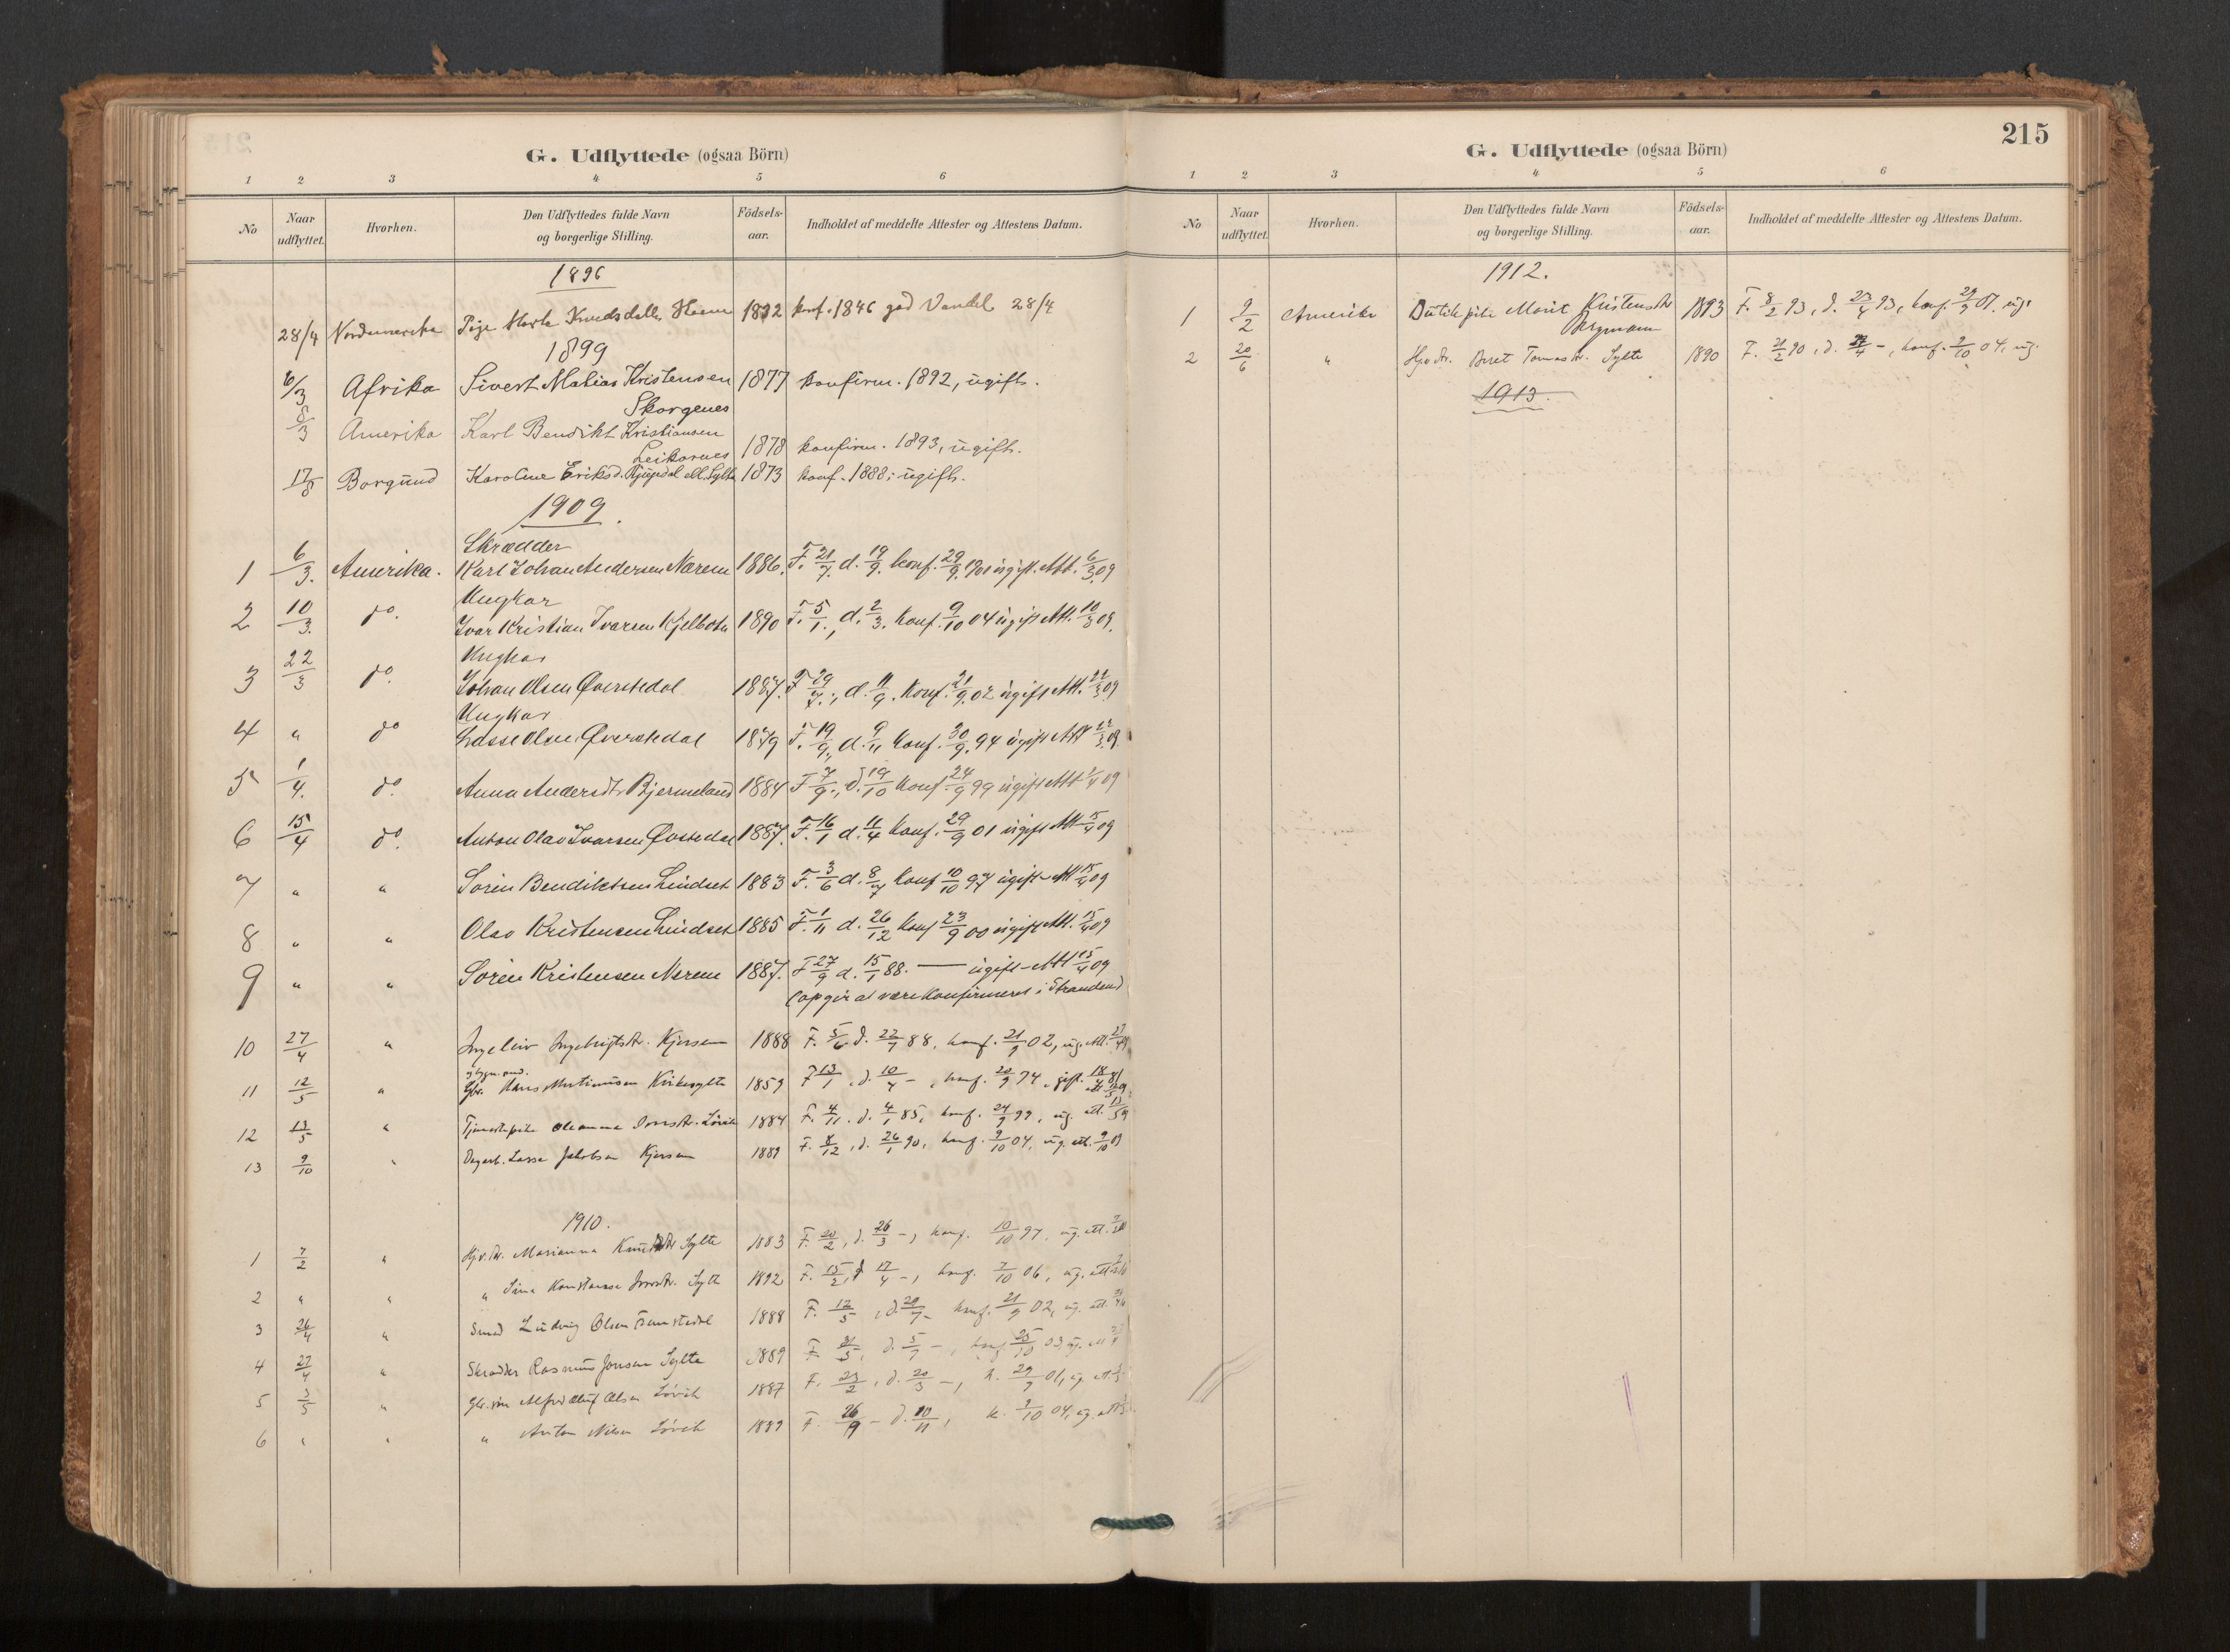 G. Udflyttede (ogsaa Börn)
1 2 3 4 5 6
No Naar udflyttet. Hvorhen. Den Udflyttedes fulde Navn og borgerlige Stilling. Födsels-aar. Indholdet af meddelte Attester og Attestens Datum.
1896
28/4 Nordamerika Pige Knudsdatter 1832 konf. 1846 god Vandel 28/4
1899
6/3 Afrika Sivert Matias Kristensen 1877 konfirm. 1892, ugift.
Skorgenes
8/3 Amerika Karl Bendikt Kristiansen
Leikarnes 1878 konfirm. 1893, ugift.
17/8 Borgund Karoline Eriksd. Sylte 1873 konf. 1888; ugift.
1909.
Skrædder
1 6/3. Amerika. Karl Johan Andersen Nærem 1886. F. 21/7. d. 19/9. konf. 29/9. 1901 ugift. Att. 6/3.09
Ungkar
2 10/3. do. Ivar Kristian Ivarsen Kjelbotn 1890 F. 5/1., d. 2/3. konf. 9/10 04 ugift Att. 10/3 09.
Ungkar
3 22/3 do. Johan Olsen Øverstedal 1887. F 29/7., d. 11/9. konf. 21/9. 02 ugift Att. 22/3 09
Ungkar
4 " do Lasse Olsen Øverstedal 1879 F. 19/9., d. 9/11 konf. 30/9. 94 ugift Att 22/3. 09
5 1/4. do. Anna Andersdtr Bjermeland 1884 F 7/9., d. 19/10 konf. 24/9 99 ugift Att 1/4 09
6 15/4 do. Anton Olav Ivarsen Øvstedal 1887. F. 16/1 d. 11/4 konf. 29/9 01 ugift Att 15/4 09
7 " " Sørin Bendiktsen Lindset 1883 F. 3/6 d. 8/7 konf 10/10 97 ugift Att 15/4 09
8 " " Olav Kristensen Lindset 1885 F. 1/11 d. 26/12 konf 23/9 00 ugift Att. 15/4 09
9 " " Sørin Kristensen Nærem 1887. F 27/9 d. 15/1 88. — ugift - Att 15/4 09
(opgir at være konfirmeret i Stranden)
10 27/4 " Ingeleiv Ingebrigtsdtr. Kjersem 1888 F. 5/6 d. 22/7 88, konf. 21/9 02, ug. Att. 27/4 09
11 12/5 " Gbr. Hans Martinusen Kirkesylte 1859 F 13/1, d. 10/4 -, konf. 20/9 74, gift.
12 13/5 " Tjenestepike Oleanna Løvik 1884 F. 4/11. d. 4/1 85, konf. 24/9 99, ug. att. 13/5 09
13 9/10 " Dagarb. Lasse Jakobsen Kjersem 1889 F. 8/12, d. 26/1 90, konf. 9/10 04, ug. att. 9/10 09
1910.
1 7/2 " Gbr.dtr. Marianna Sylte 1883 F. 20/2, d. 26/3 -, konf. 10/10 97, ug. att.
2 " " " Sina Konstanse Sylte 1892 F. 15/2, d 17/4 -, konf. 7/10 06, ug. att.
3 26/4 " Smed Ludvig Olsen 1888 F. 12/5, d. 29/7 - konf. 21/9 02, ug. att.
4 27/4 " Skrædder Rasmus Jonsen Sylte 1889 F. 31/5, d. 5/7 -, konf 25/10 03, ug. att
5 3/5 " Gbr.søn Alfred Oluf Olsen Løvik 1887 F. 23/2, d. 20/3 -, k. 29/9 01, ug. att.
6 " " " Anton Nilsen Løvik 1889 F. 26/9 - d. 10/11, k. 9/10 04, ug. att
215
G. Udflyttede (ogsaa Börn)
1 2 3 4 5 6
No Naar udflyttet. Hvorhen. Den Udflyttedes fulde Navn og borgerlige Stilling. Födsels-aar. Indholdet af meddelte Attester og Attestens Datum.
1912.
1 9/2 Amerika Butikpike Marit Kristensdtr 1893 F. 8/2 93, d. 23/4 93, konf. 29/9 07, ug.
2 20/6 " Gbr.dtr. Beret Tomasdtr. Sylte 1890 F. 21/2 90, d. 27/4 -, konf. 9/10 04, ug.
1913.